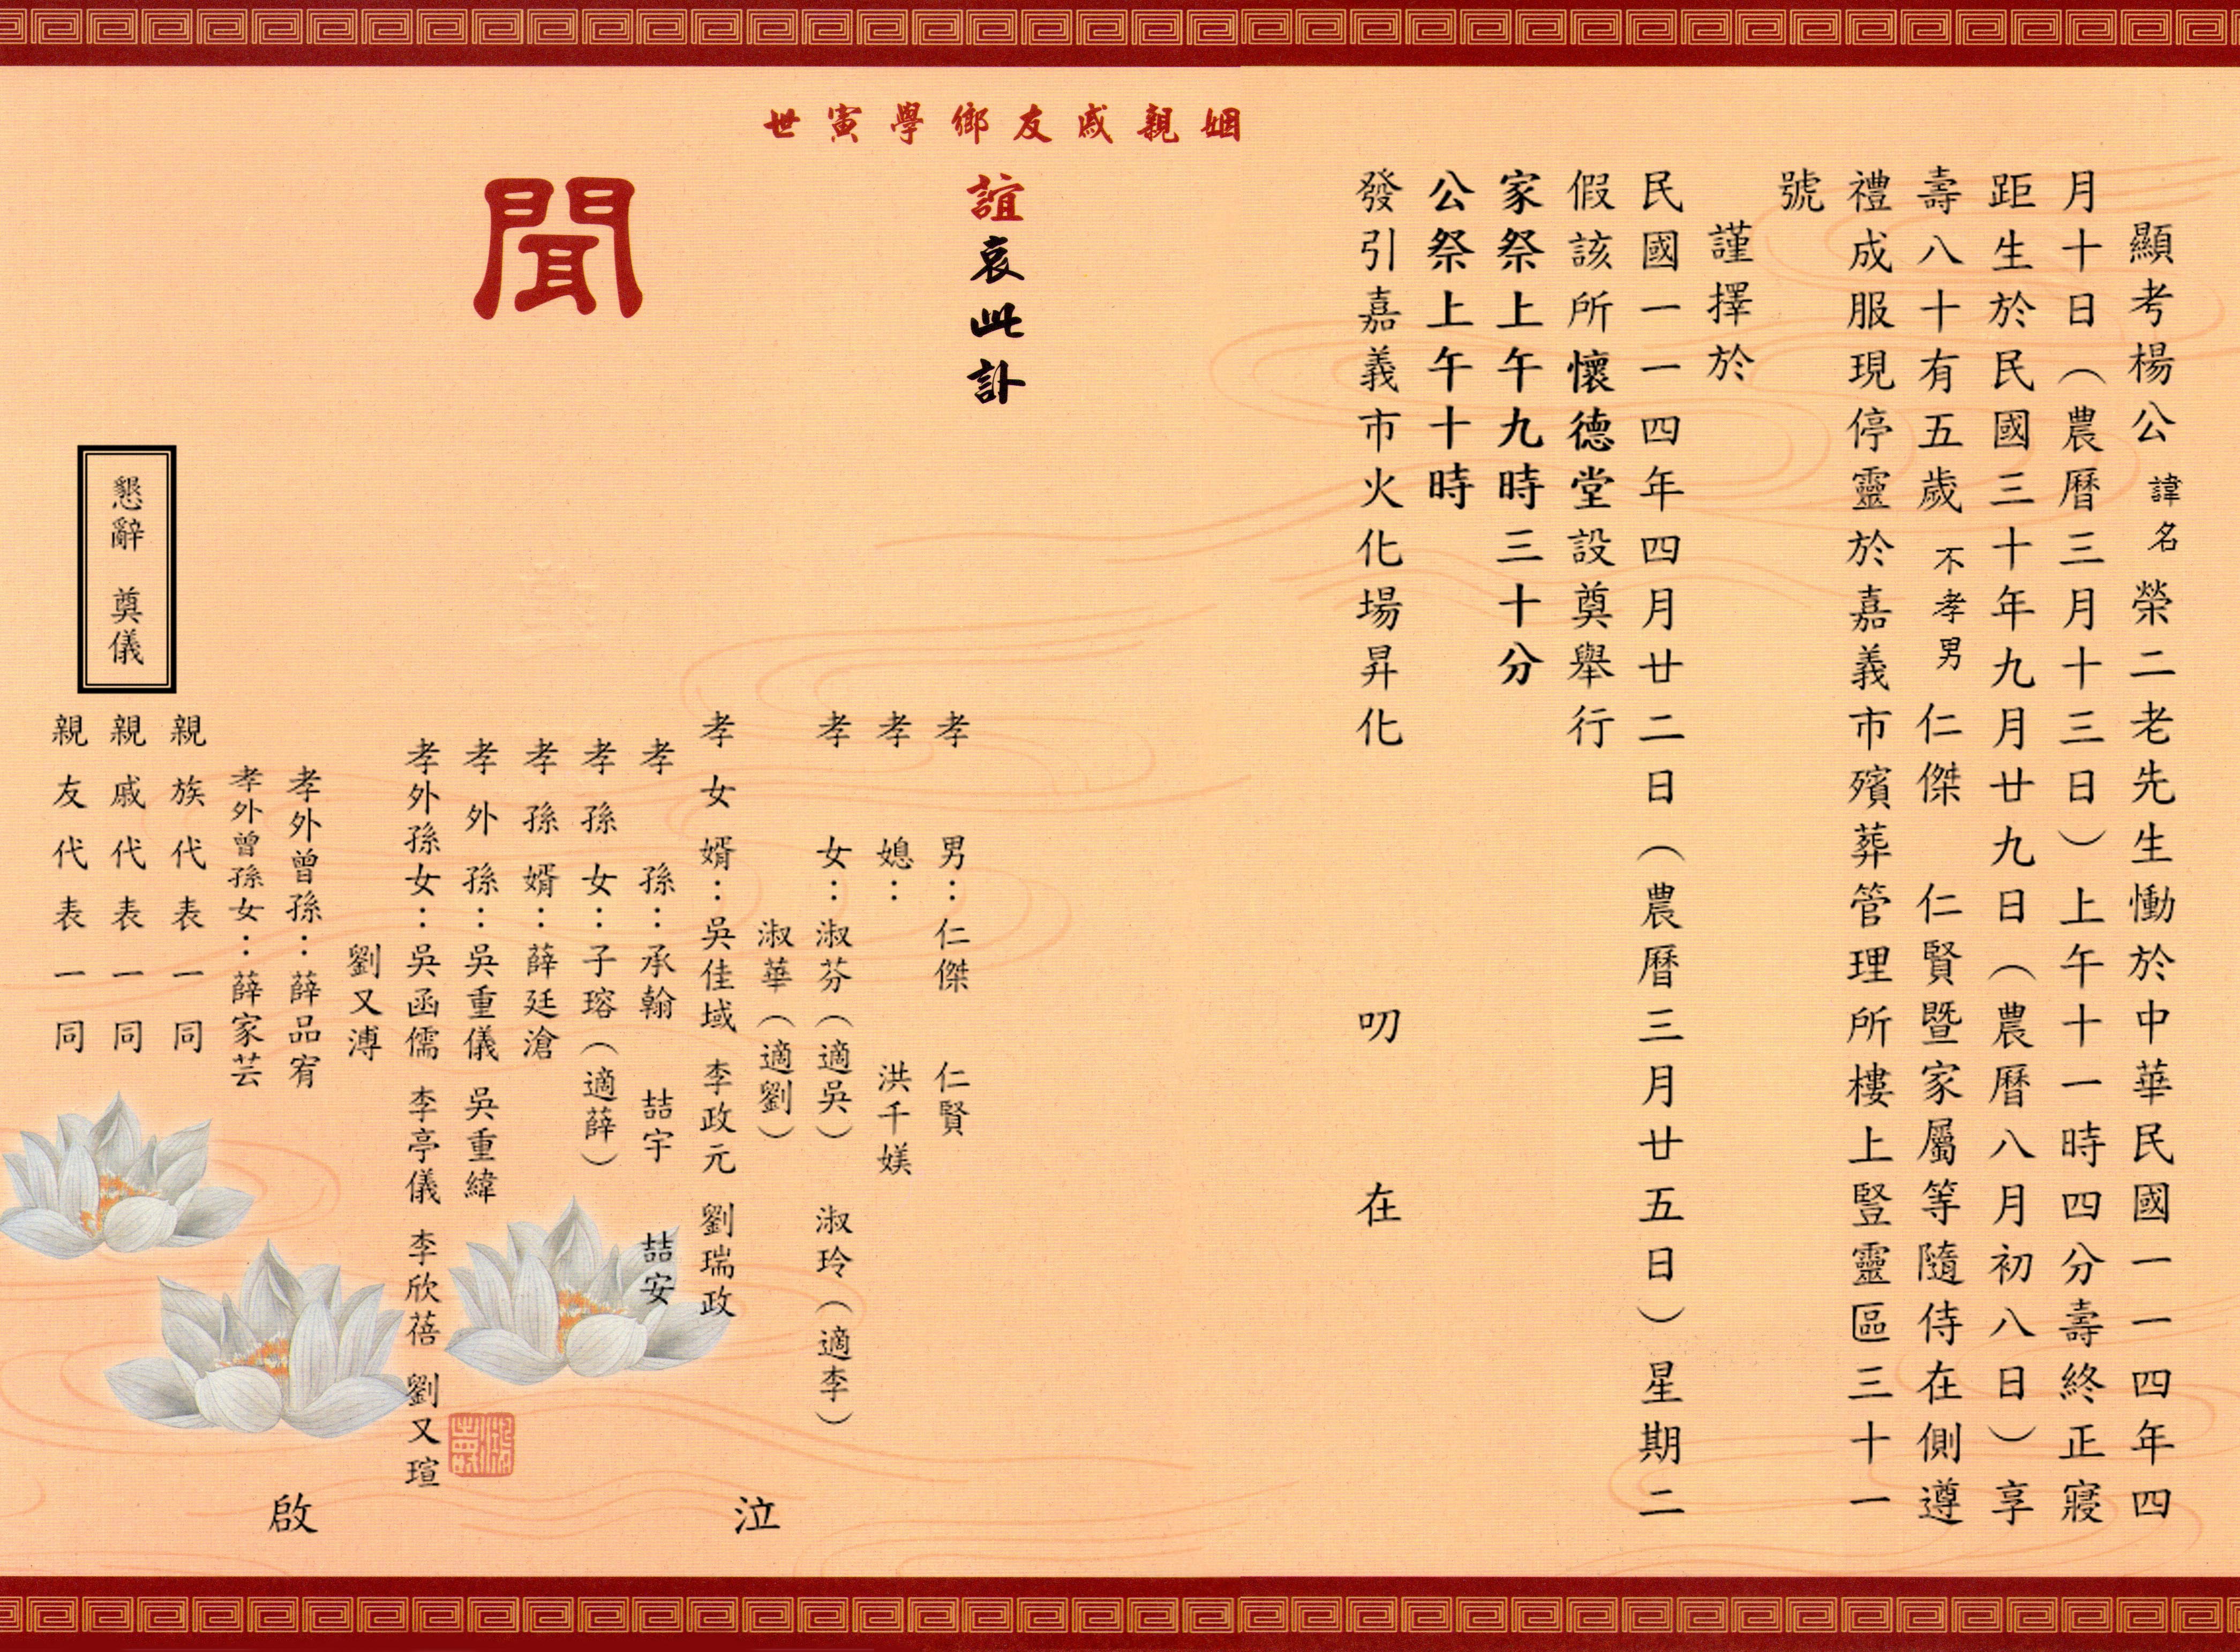 顯考楊公 諱名 榮二老先生慟於中華民國一一四年四
月十日（農曆三月十三日）上午十一時四分壽終正寢
距生於民國三十年九月廿九日（農曆八月初八日）享
壽八十有五歲 不孝男 仁傑 仁賢暨家屬等隨侍在側遵
禮成服現停靈於嘉義市殯葬管理所樓上豎靈區三十一
號
謹擇於
民國一一四年四月廿二日（農曆三月廿五日）星期二
假該所懷德堂設奠舉行
家祭上午九時三十分
公祭上午十時
發引嘉義市火化場昇化 叨 在
姻親戚友鄉學寅世
誼哀此訃
聞
孝 男：仁傑 仁賢
孝 媳： 洪千媄
孝 女：淑芬（適吳） 淑玲（適李）
淑華（適劉）
孝女婿：吳佳域 李政元 劉瑞政
孝 孫：承翰 喆宇 喆安
孝孫女：子瑢（適薛）
孝孫婿：薛廷滄
孝外孫：吳重儀 吳重緯
孝外孫女：吳函儒 李亭儀 李欣蓓 劉又瑄
劉又溥
孝外曾孫：薛品宥
孝外曾孫女：薛家芸
親族代表一同
親戚代表一同
親友代表一同
泣 啟
懇辭 奠儀